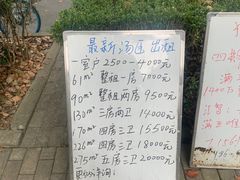 最新汤臣出租
一室户2500-4000元
61m² 整租一房7000元
90m² 整租两房9500元
130m² 三房两卫14000元
170m² 四房三卫15500元
226m² 四房三卫18000元
275m² 五房三卫20000元